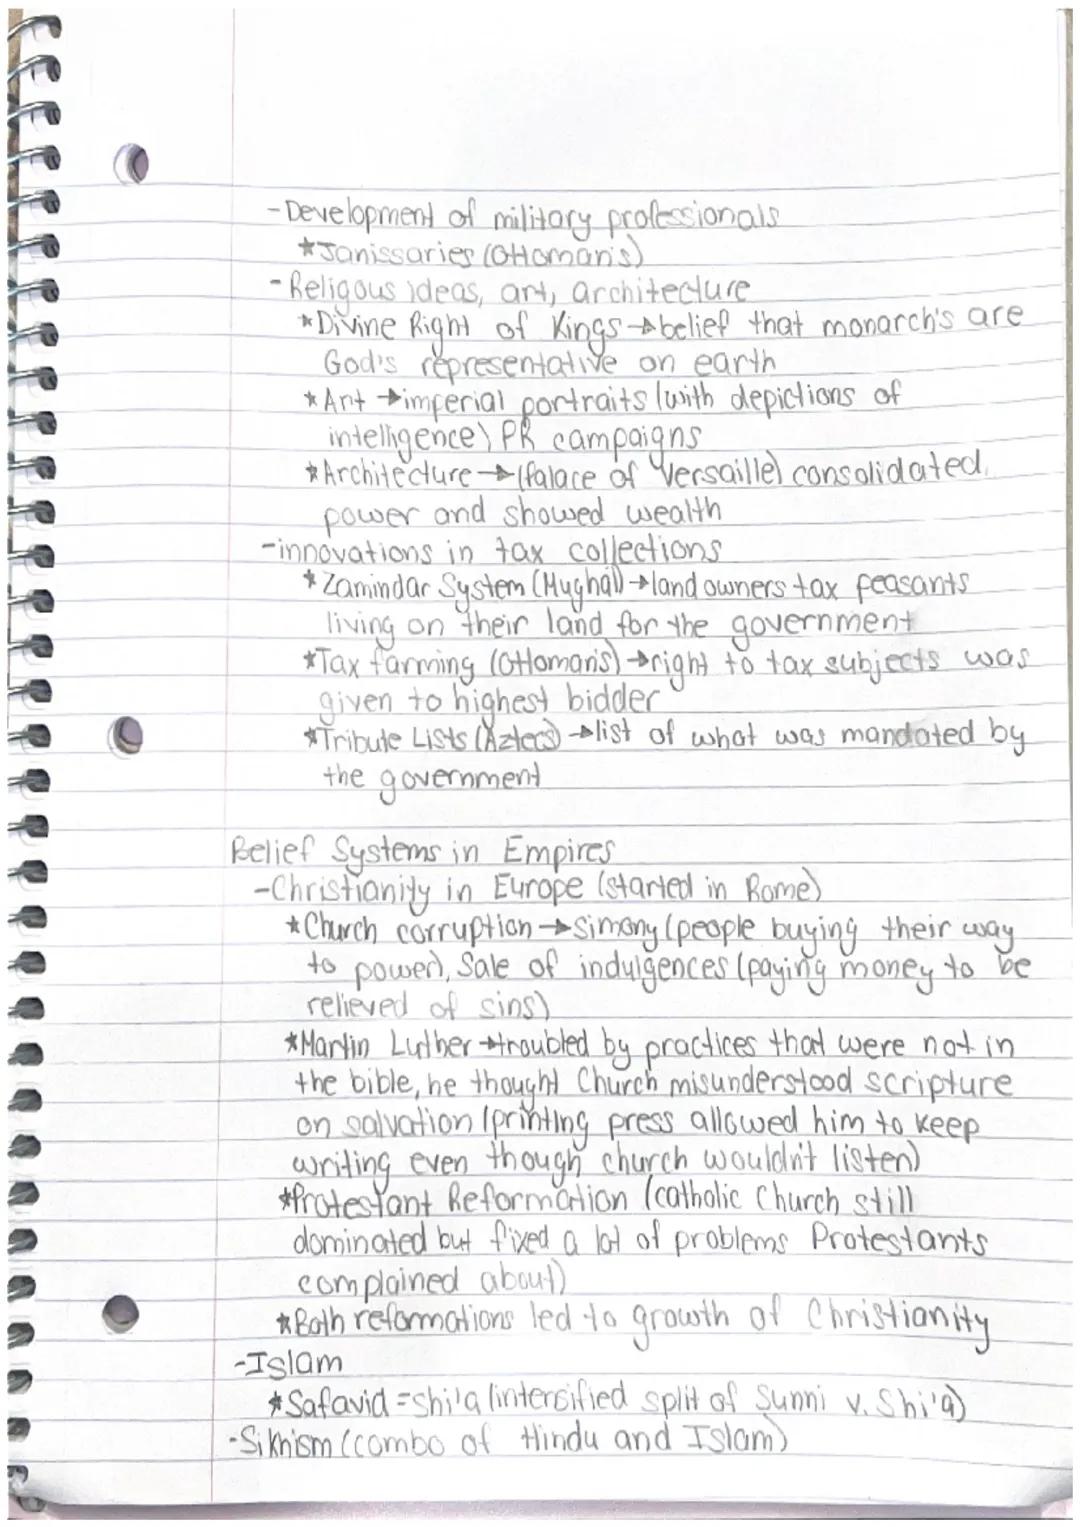 -Development of military professionals
*Janissaries (Ottoman's)
-Religous ideas, art, architecture
*Divine Right of Kings→belief that monarch's are
God's representative on earth
*Art→imperial portraits (with depictions of
intelligence) PR campaigns
*Architecture→(Palace of Versaille) consolidated
power and showed wealth
-innovations in tax collections
*Zamindar System (Mughal)→land owners tax peasants
living on their land for the government
*Tax farming (Ottoman's)→right to tax subjects was
given to highest bidder
*Tribute Lists (Aztecs)→list of what was mandated by
the government
Belief Systems in Empires
-Christianity in Europe (started in Rome)
*Church corruption→Simony (people buying their way
to power), Sale of indulgences (paying money to be
relieved of sins)
*Martin Luther→troubled by practices that were not in
the bible, he thought Church misunderstood scripture
on salvation (printing press allowed him to keep
writing even though church wouldn't listen)
*Protestant Reformation (catholic Church still
dominated but fixed a lot of problems Protestants
complained about)
*Both reformations led to growth of Christianity
-Islam
*Safavid=Shi'a (intensified split of Sunni v. Shi'a)
-Sikhism (combo of Hindu and Islam)